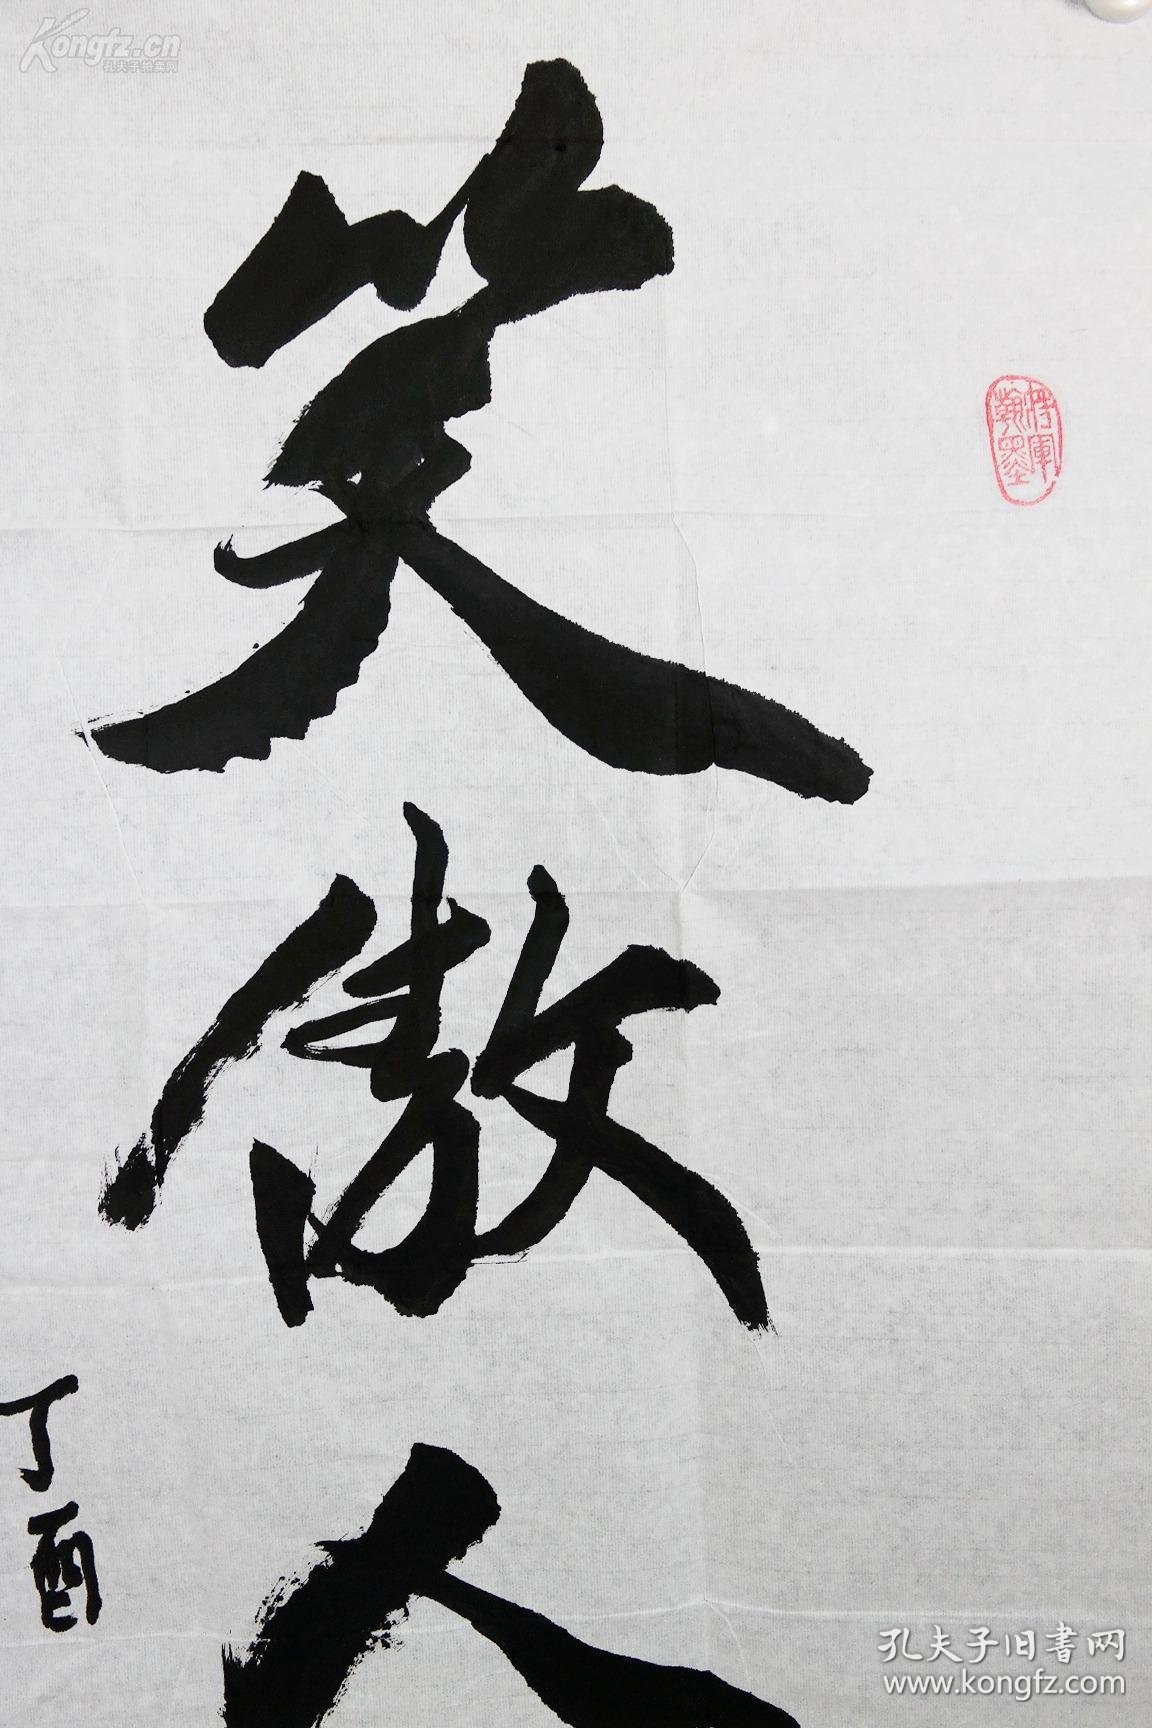 Kongfz.cn
孔夫子拍卖网
笑
傲
人
将軍
翰墨
丁
酉
孔夫子旧書网
www.kongfz.com